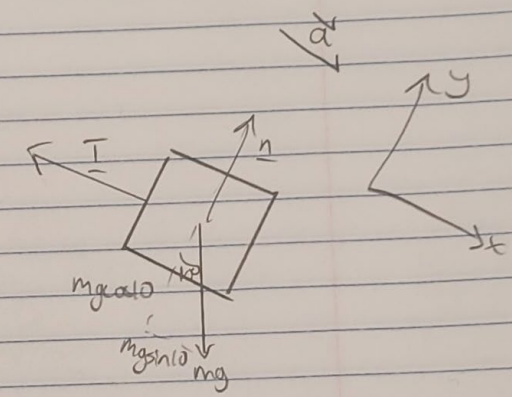 a
y
T
n
x
10°
mgcos10
mgsin10
mg